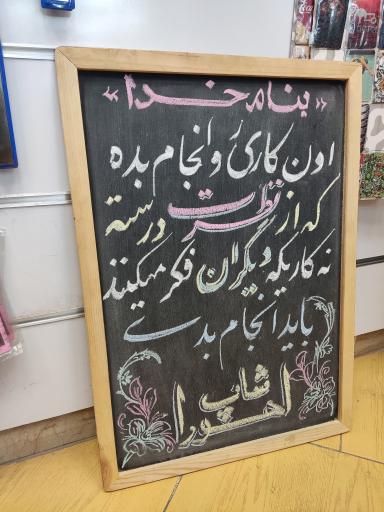 «بنام خدا»
اون کاریُ و انجام بده
که از نظرت درسته
نه کاریکه دیگران فکر میکنند
باید انجام بدی
شاپ
اهورا